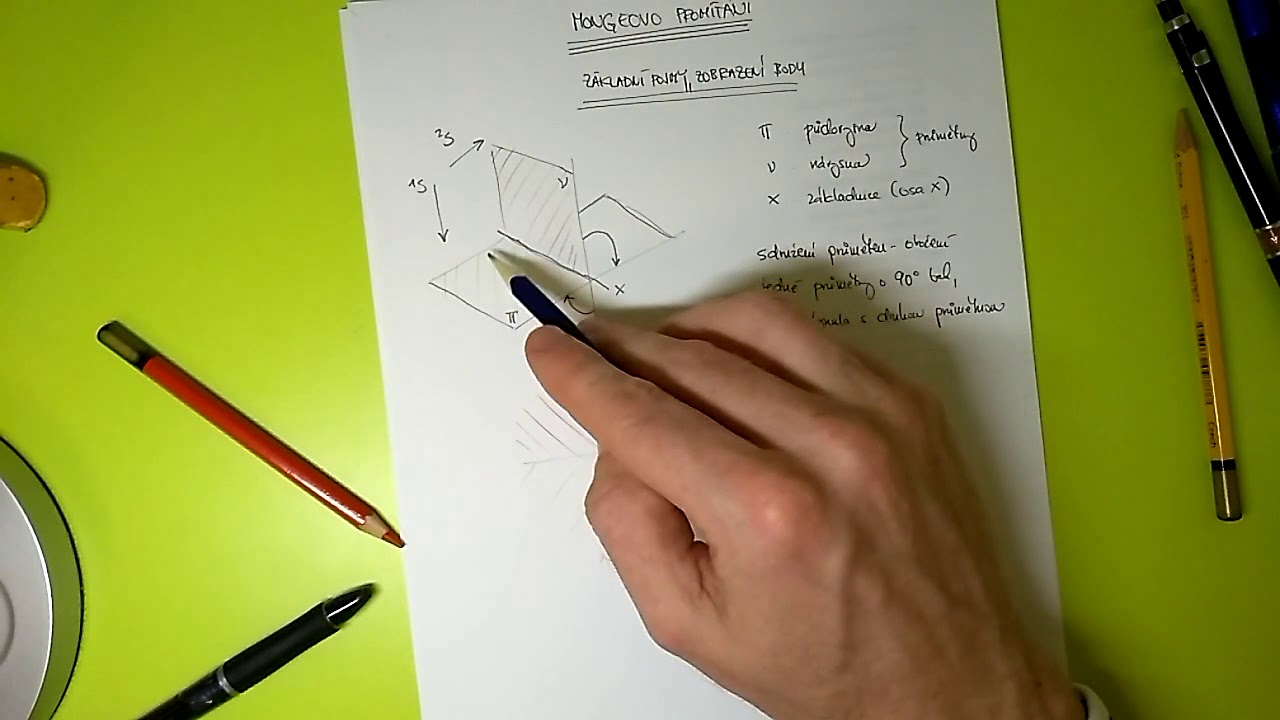 MONGEOVO PROMÍTÁNÍ
ZÁKLADNÍ POJMY, ZOBRAZENÍ BODU
²S
¹S
ν
x
π
π půdorysna
ν nárysna
průmětny
x základnice (osa x)
sdružení průměten - otočení
jedné průmětny o 90° tak,
s druhou průmětnou